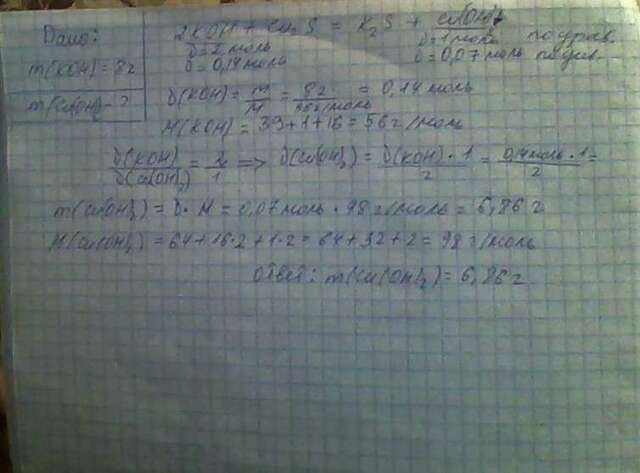 Дано:
m(KOH) = 8г
m(Cu(OH)₂) - ?
2KOH + Cu₂S = K₂S + Cu(OH)₂
υ = 2 моль υ = 1 моль по урав.
υ = 0,14 моль υ = 0,07 моль по усл.
υ(KOH) = m/M = 8г/56г/моль = 0,14 моль
M(KOH) = 39+1+16 = 56 г/моль
υ(KOH)/υ(Cu(OH)₂) = 2/1 => υ(Cu(OH)₂) = υ(KOH)·1/2 = 0,14 моль·1/2 =
m(Cu(OH)₂) = υ · M = 0,07 моль · 98 г/моль = 6,86 г
M(Cu(OH)₂) = 64+16·2+1·2 = 64+32+2 = 98 г/моль
Ответ: m(Cu(OH)₂) = 6,86 г